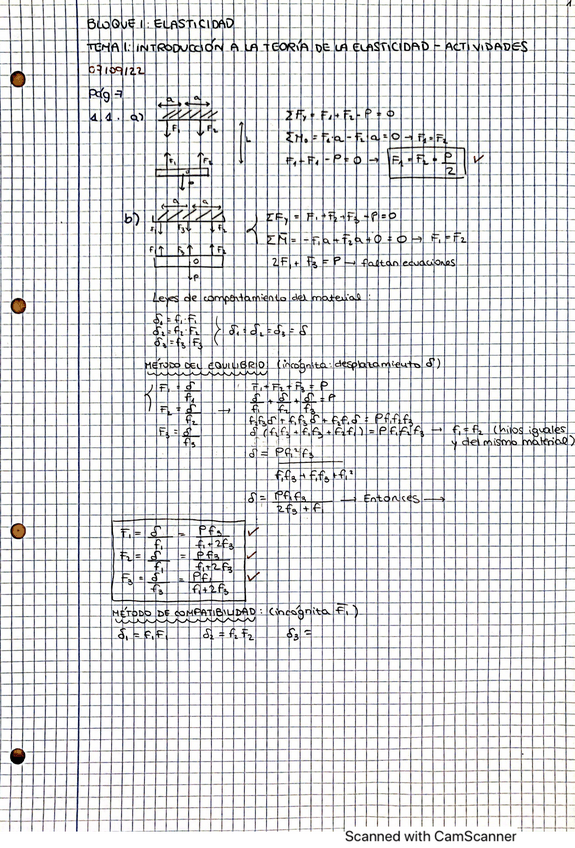 1
BLOQUE I: ELASTICIDAD
TEMA 1: INTRODUCCIÓN A LA TEORÍA DE LA ELASTICIDAD - ACTIVIDADES
07/09/22
Pág 7
1.1. a)
a a
F₁ F₂
L
F₁ F₂
O
P
ΣFy = F₁ + F₂ - P = 0
ΣM₀ = F₁·a - F₂·a = 0 → F₁ = F₂
F₁ + F₁ - P = 0 → F₁ = F₂ = P/2 ✓
b)
a a
F₁ F₃ F₂
F₁ F₃ F₂
O
P
ΣFy = F₁ + F₂ + F₃ - P = 0
ΣM = -F₁a + F₂a + 0 = 0 → F₁ = F₂
2F₁ + F₃ = P → faltan ecuaciones
Leyes de comportamiento del material:
δ₁ = f₁·F₁
δ₂ = f₂·F₂
δ₃ = f₃·F₃
δ₁ = δ₂ = δ₃ = δ
MÉTODO DEL EQUILIBRIO (incógnita: desplazamiento δ)
F₁ = δ/f₁
F₂ = δ/f₂
F₃ = δ/f₃
→
F₁ + F₂ + F₃ = P
δ/f₁ + δ/f₂ + δ/f₃ = P
f₂f₃δ + f₁f₃δ + f₂f₁δ = Pf₁f₂f₃
δ (f₂f₃ + f₁f₃ + f₂f₁) = Pf₁f₂f₃ → f₁ = f₂ (hilos iguales
y del mismo material)
δ = Pf₁²f₃/f₁f₃ + f₁f₃ + f₁²
δ = Pf₁f₃/2f₃ + f₁ → Entonces →
F₁ = δ/f₁ = Pf₃/f₁+2f₃ ✓
F₂ = δ/f₁ = Pf₃/f₁+2f₃ ✓
F₃ = δ/f₃ = Pf₁/f₁+2f₃ ✓
MÉTODO DE COMPATIBILIDAD: (incógnita F₁)
δ₁ = f₁F₁ δ₂ = f₂F₂ δ₃ =
Scanned with CamScanner